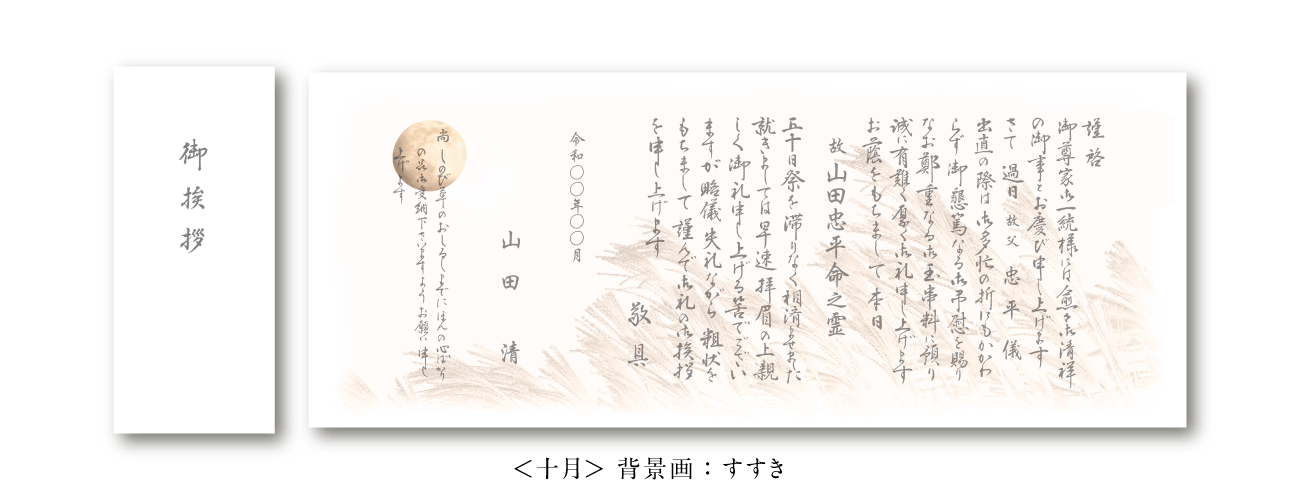 御挨拶
謹啓
御尊家御一統様には愈々御清祥
の御事とお慶び申し上げます
さて 過日 故父 忠平 儀
出直の際は 御多忙の折にもかかわ
らず 御懇篤なる御弔慰を賜り
なお鄭重なる御玉串料に預り
誠に有難く厚く御礼申し上げます
お蔭をもちまして 本日
故 山田忠平命之霊
五十日祭を 滞りなく相済ませました
就きましては早速拝眉の上親
しく御礼申し上げる筈でございい
ますが 略儀 失礼ながら 粗状を
もちまして 謹んで御礼の御挨拶
を申し上げます
敬具
令和〇〇年〇〇月
山田 清
尚 しのび草のおしるしまでにほんの心ばかり
の品御受納下さいますようお願い申し
上げます
＜十月＞ 背景画：すすき